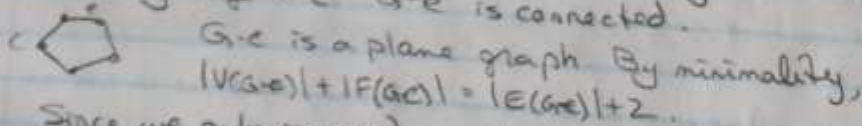 G-e is connected.
e
C
G-e is a plane graph. By minimality,
|V(G-e)| + |F(G-e)| = |E(G-e)| + 2.
Since we